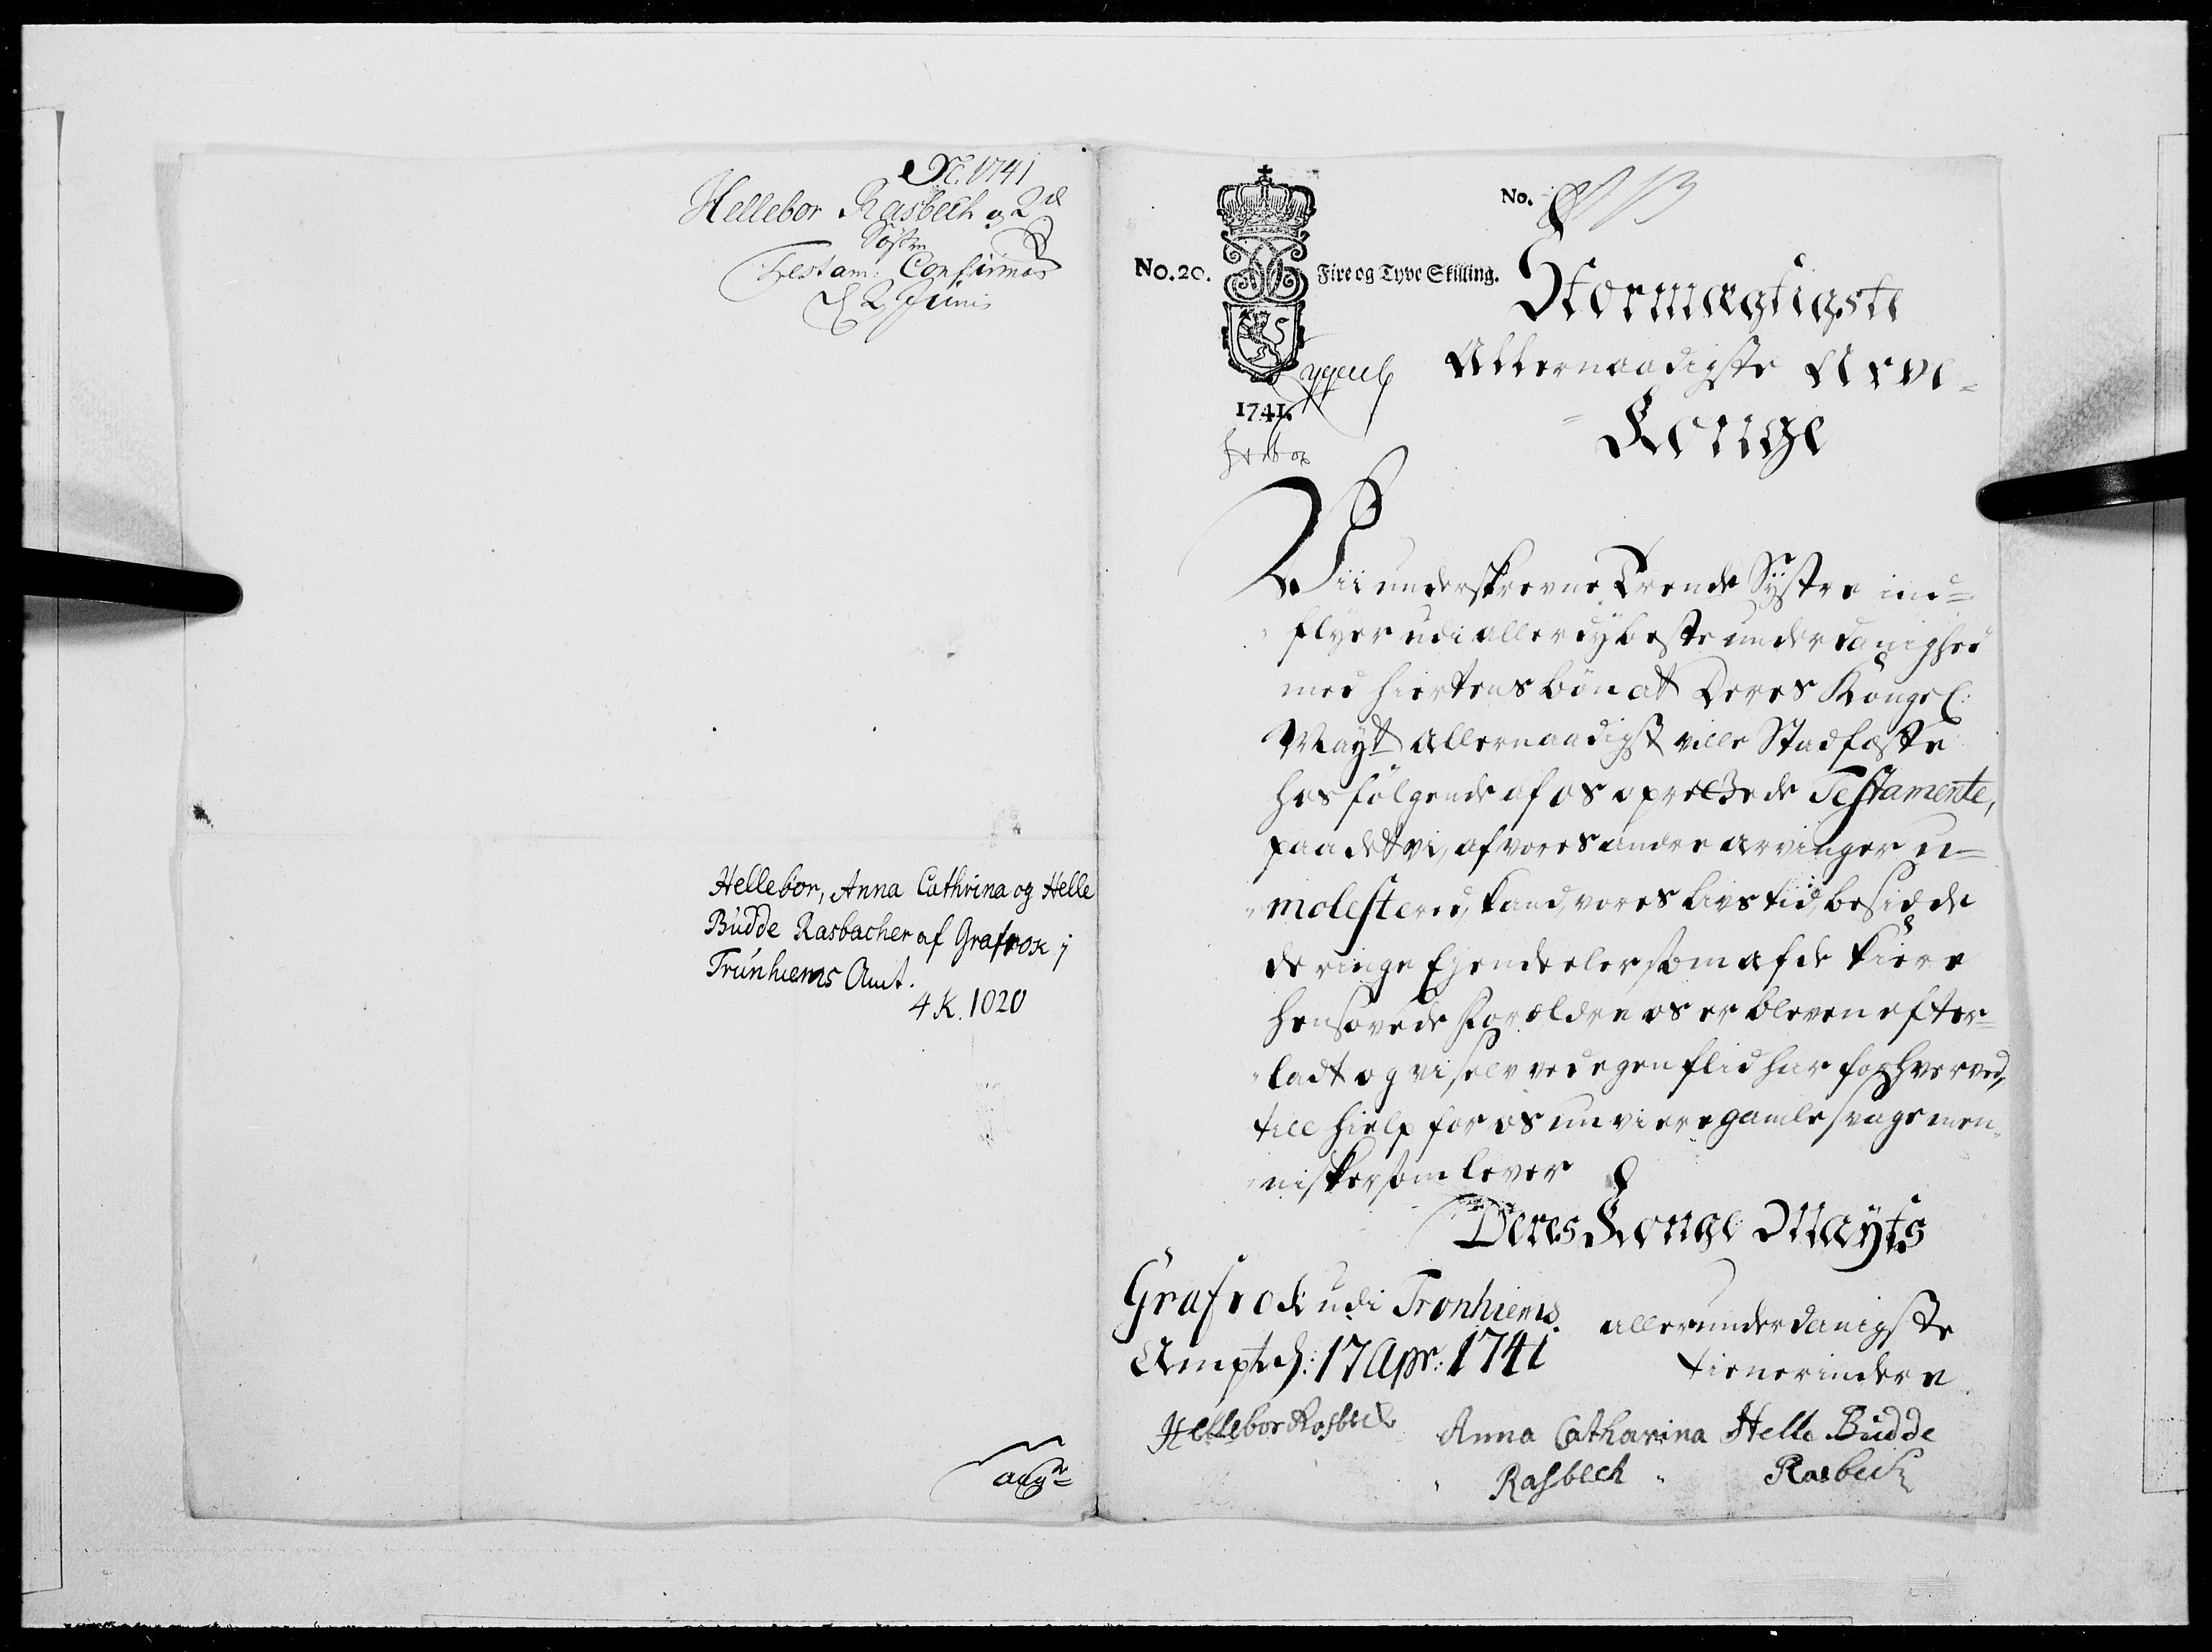 1741
Hellebor Rasbech og 2de
Søstre
Testam: Confirmas
d 2 Junij
Hellebor, Anna Cathrina og Helle
Budde Rasbacher af Grafrok i
Trunhiems Amt.
4 K. 1020
No.
No. 20.
Fire og Tyve Skilling.
1741.
Stormægtigste
Allernaadigste Arve-
Konge
Vii underskrevne Trende Systre ind=
flyer udi allerdybeste underdanighed
med hiertens bøn at Deres Kongel:
Mayt allernaadigst ville Stadfæste
hosfølgende af os oprettede Testamente,
paa det vi, af vores andre arvinger u=
molestered, kand, vores livs tid, besidde
de ringe Ejendeeler som af de kiere
hensovede Forældre os er bleven efter=
ladt og vi selv ved egen flid har forhverved,
till hielp for os nu vi ere gamle svage men
nisker som lever
Deres Konge Mayts
Grafrok udi Tronhiems
Ampt d: 17 Apr: 1741
allerunderdanigste
tienerindere
Hellebor Rasbech
Anna Catharina
Rasbech
Helle Budde
Rasbech